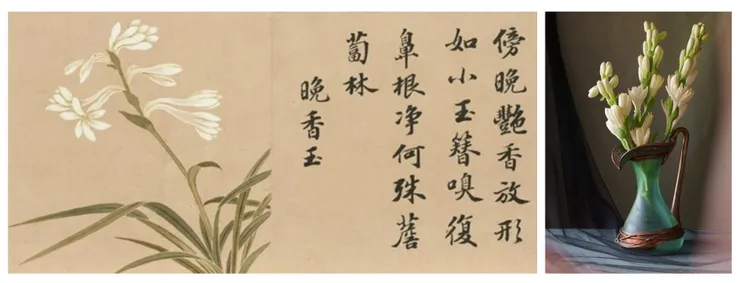 傍晚艷香放形
如小玉簪嗅復
鼻根净何殊薝
蔔林
晚香玉